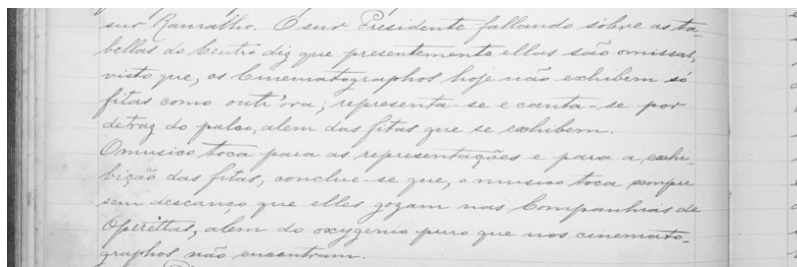 snr Ramalho. O snr Presidente fallando sôbre as ta-
bellas do Centro diz que presentemente ellas são omissas,
visto que, os Cinematographos hoje não exhibem só
fitas como outr'ora; representa-se e canta-se por
detraz do palco, alem das fitas que se exhibem.
O musico toca para as representações e para a exhi-
bição das fitas; conclue-se que, o musico toca sempre
sem descanço que elles gozam nas Companhias de
Operêttas, alem do oxygenio puro que nos cinemato-
graphos não encontram.